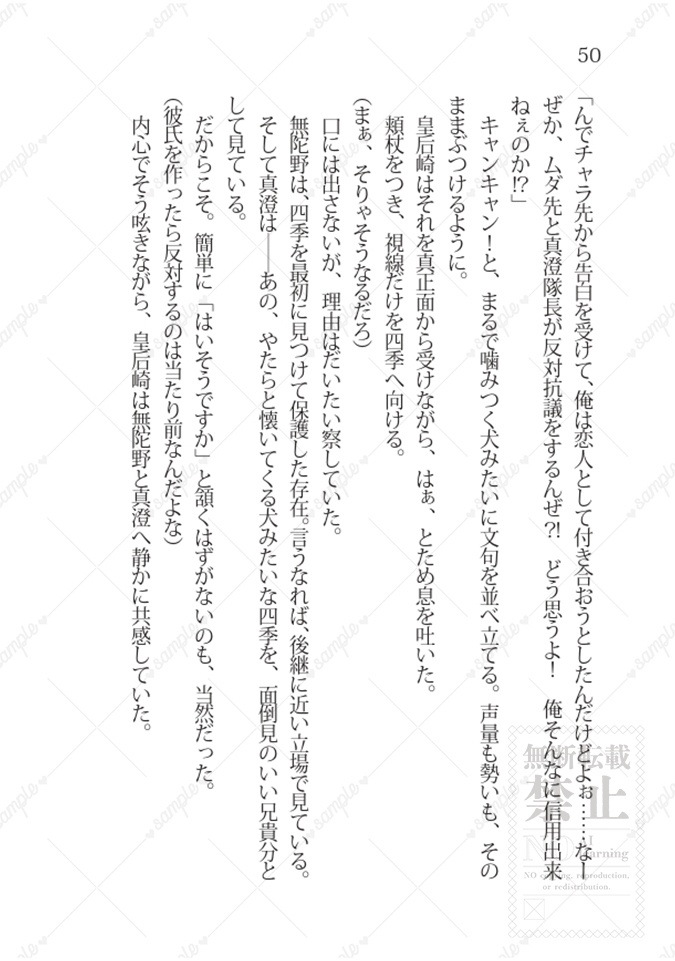 50
「んでチャラ先から告白を受けて、俺は恋人として付き合おうとしたんだけどよぉ……なー
ぜか、ムダ先と真澄隊長が反対抗議をするんぜ?!　どう思うよ！　俺そんなに信用出来
ねぇのか!?」
　キャンキャン！と、まるで噛みつく犬みたいに文句を並べ立てる。声量も勢いも、その
ままぶつけるように。
　皇后崎はそれを真正面から受けながら、はぁ、とため息を吐いた。
　頬杖をつき、視線だけを四季へ向ける。
(まぁ、そりゃそうなるだろ)
　口には出さないが、理由はだいたい察していた。
　無陀野は、四季を最初に見つけて保護した存在。言うなれば、後継に近い立場で見ている。
　そして真澄は――あの、やたらと懐いてくる犬みたいな四季を、面倒見のいい兄貴分と
して見ている。
　だからこそ。簡単に「はいそうですか」と頷くはずがないのも、当然だった。
(彼氏を作ったら反対するのは当たり前なんだよな)
　内心でそう呟きながら、皇后崎は無陀野と真澄へ静かに共感していた。
無断転載
禁止
NO
reproduction,
or redistribution.
sample